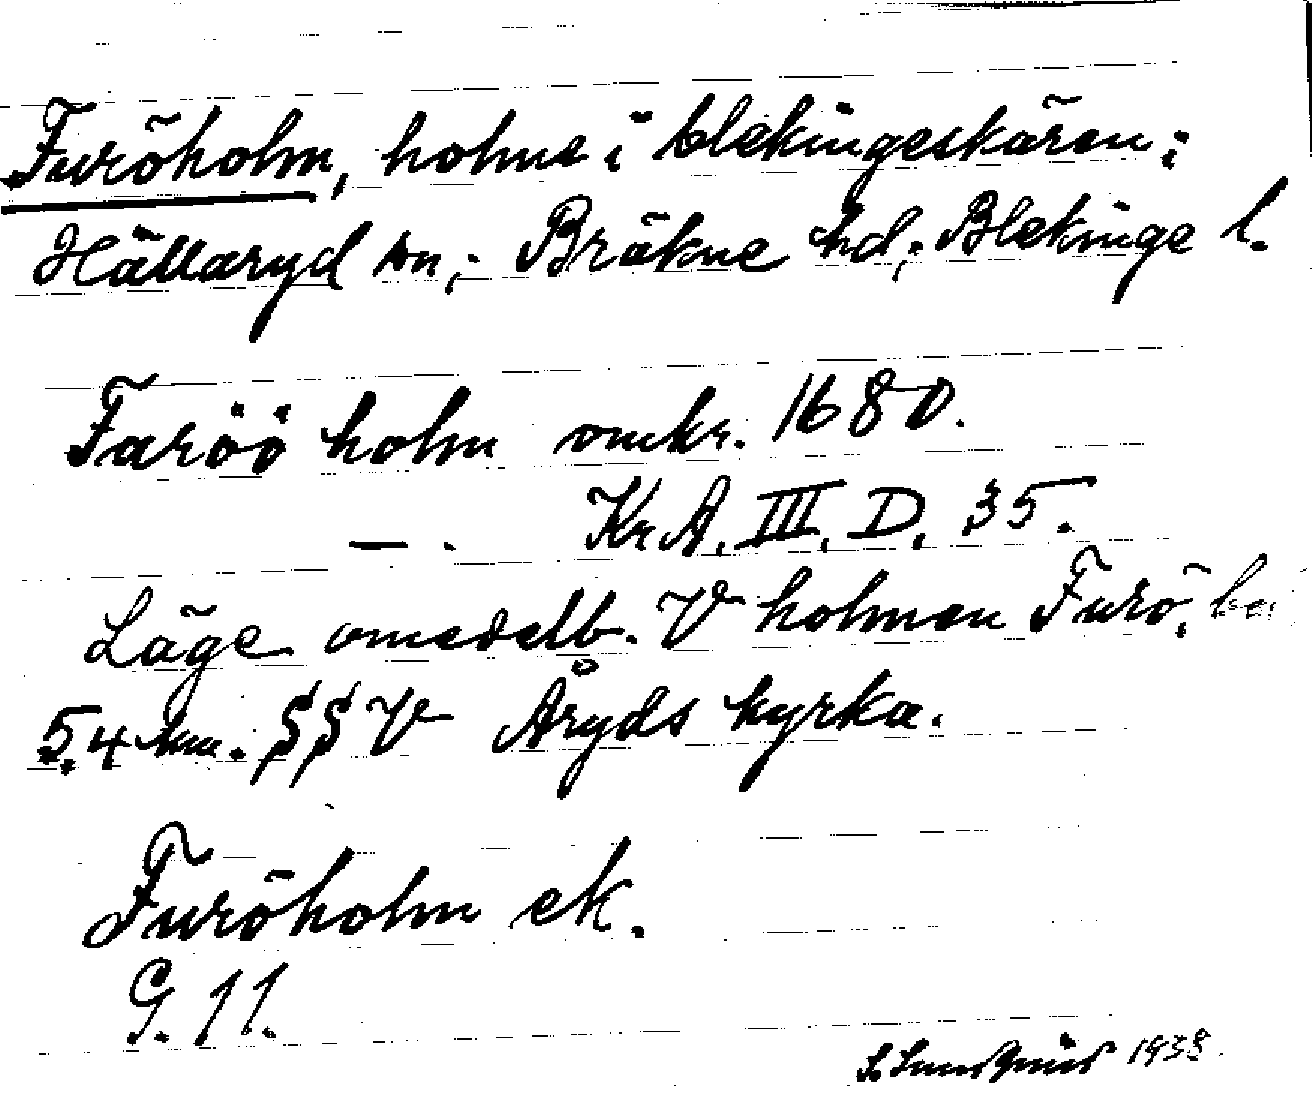 Furöholm, holme i blekingeskären;
Hällaryd sn; Bräkne hd; Blekinge l.
Faröö holm omkr. 1680.
— . Kr.A. III. D. 35.
Läge omedelb. V holmen Furö,
5.4 km. SSV Åryds kyrka.
Furöholm ek.
G. 11.
1938.